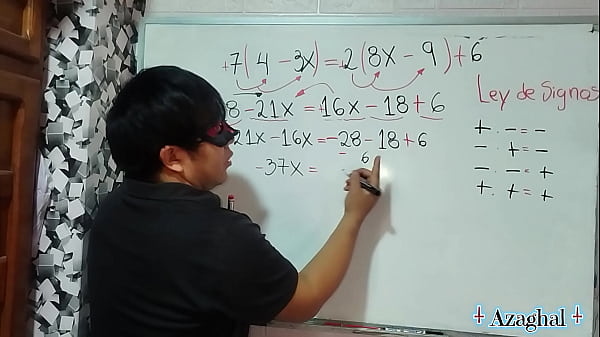 +7(4 - 3x) = 2(8x - 9) + 6
8 - 21x = 16x - 18 + 6
21x - 16x = -28 - 18 + 6
6
-37x = -
Ley de Signos
+ . - = -
- . + = -
- . - = +
+ . + = +
Azaghal